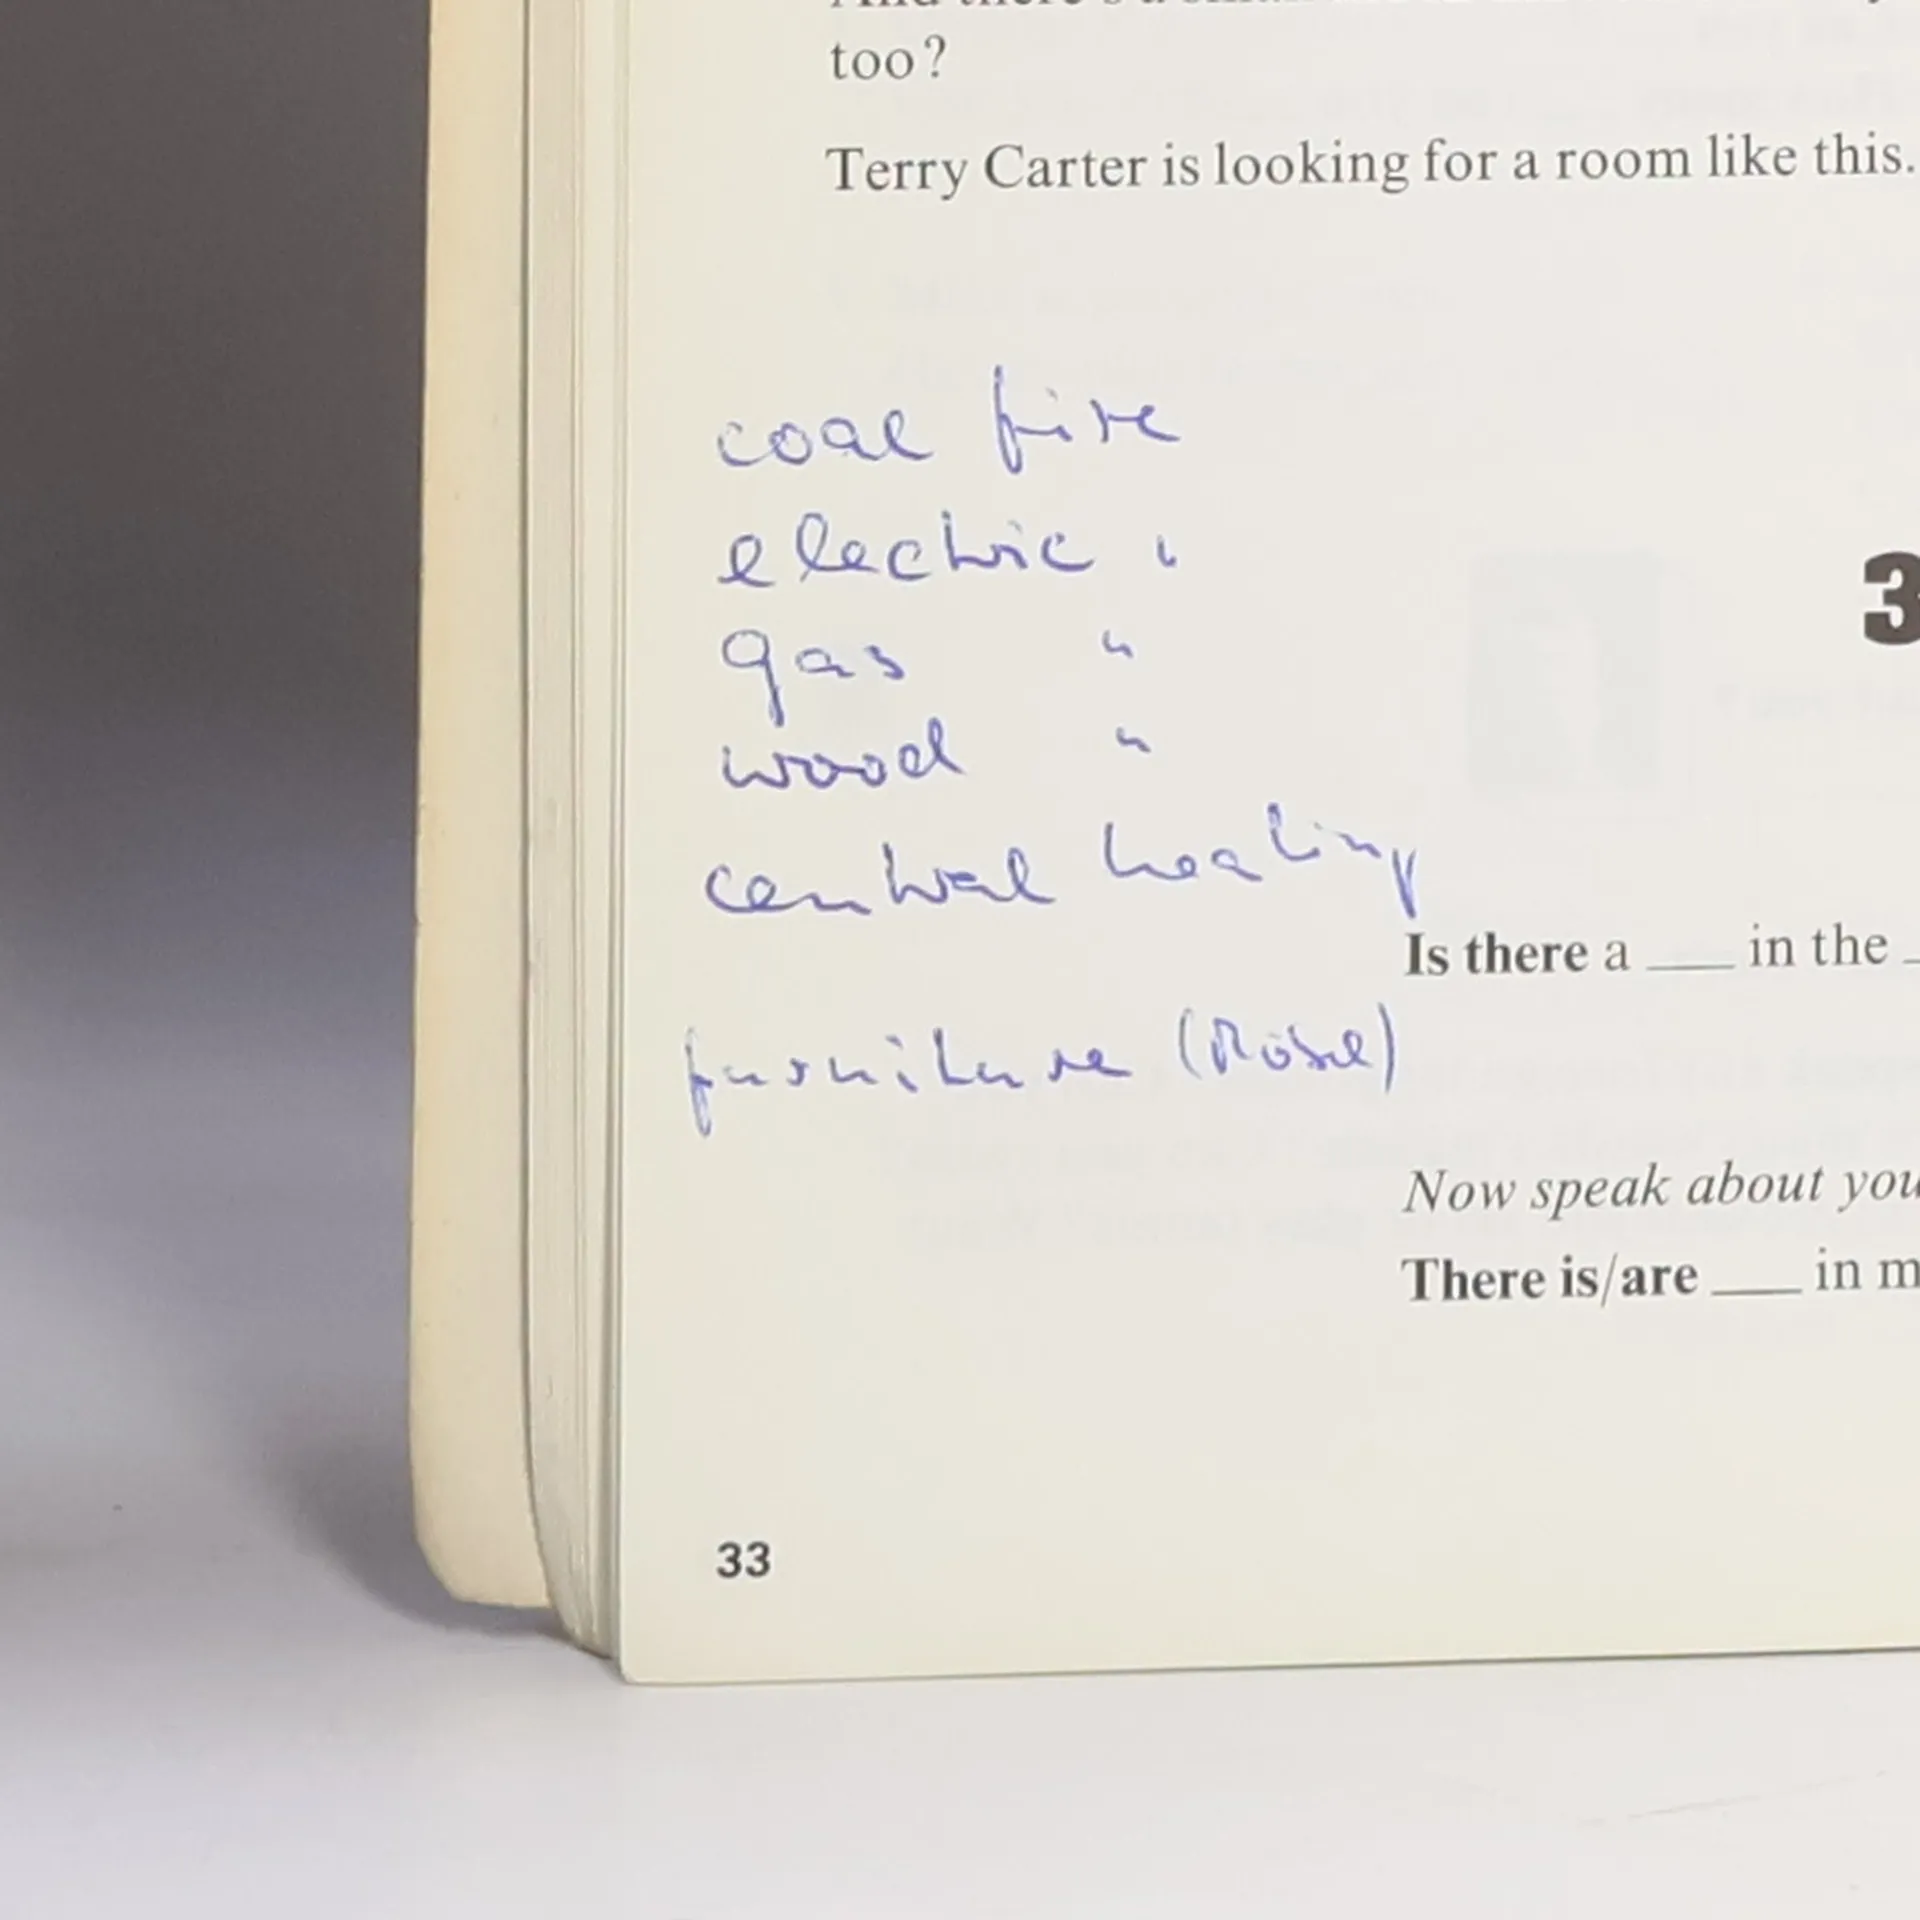 too?
Terry Carter is looking for a room like this.
coal fire
electric "
gas "
wood "
central heating
3
Is there a ___ in the
furniture (Möbel)
Now speak about you
There is/are ___ in m
33